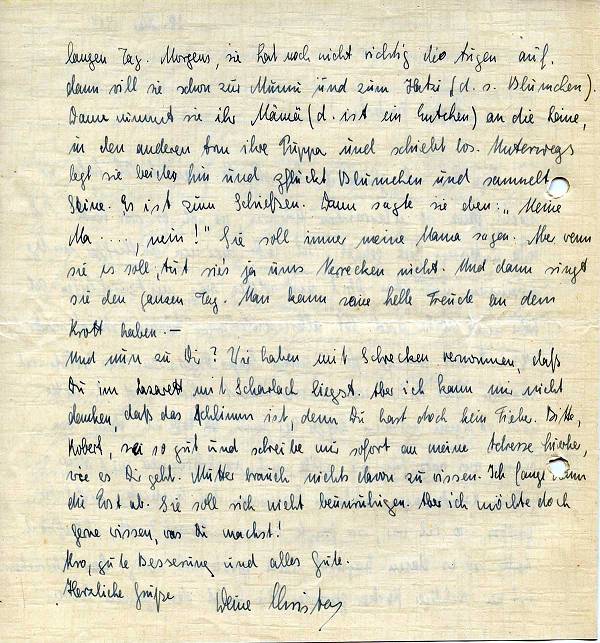 langen Tag. Morgens, sie hat noch nicht richtig die Augen auf.
dann will sie schon zur Mummi und zum Hatzi (d. s. Blümchen).
Dann nimmt sie ihr Mämä (d. ist ein Entchen) an die Leine,
in den anderen Arm ihre Puppa und schiebt los. Unterwegs
legt sie beides hin und pflückt Blümchen und sammelt
Steine. Es ist zum Schießen. Dann sagte sie eben: „Meine
Ma....., nein!" Sie soll immer meine Mama sagen. Aber wenn
sie es soll, tut sie's ja ums Verrecken nicht. Und dann singt
sie den ganzen Tag. Man kann seine helle Freude an dem
Krott haben. —
Und nun zu Dir? Wir haben mit Schrecken vernommen, daß
Du im Lazarett mit Scharlach liegst. Aber ich kann mir nicht
denken, daß das schlimm ist, denn Du hast doch kein Fieber. Bitte,
Robert, sei so gut und schreibe mir sofort an meine Adresse hierher,
wie es Dir geht. Mutter brauch nichts davon zu wissen. Ich fange dann
die Post ab. Sie soll sich nicht beunruhigen. Aber ich möchte doch
gerne wissen, was Du machst!
Also, gute Besserung und alles Gute.
Herzliche Grüße Deine Christa